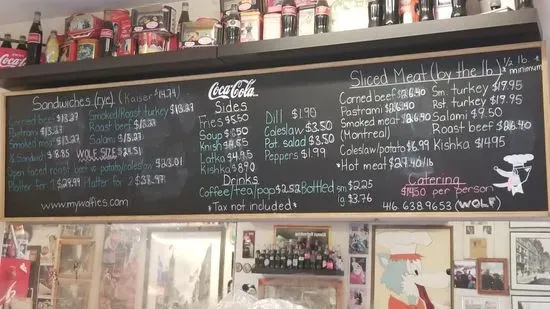 Sandwiches (rye) (Kaiser $14.74)
Corned beef $13.27
Pastrami $13.27
Smoked meat $13.27
½ Sandwich $8.85
Smoked/Roast turkey $13.27
Roast beef $13.27
Salami $13.27
WOLF SIZE $24.51
Open faced roast beef w potato/coleslaw
Platter for 1 $29.99 Platter for 2 $38.97
www.mywolfies.com
Coca-Cola
Sides
Fries $5.50
Soup
Knish
Latka $4.95
Kishka $5.50
Dill $1.90
Coleslaw $3.50
Pot. salad $3.50
Peppers $1.99
Drinks
Coffee/tea/pop $2.52
Bottled sm $2.25
lg $3.76
*Tax not included*
Sliced Meat (by the lb) *½ lb. minimum
Corned beef $26.40
Pastrami $26.40
Smoked meat $26.40
(Montreal)
Coleslaw/potato $6.99
*Hot meat $27.40/lb
Sm. turkey $19.95
Rst turkey $19.95
Salami $9.50
Roast beef $26.40
Kishka $14.95
Catering
$14.50 per person
416 638.9653 (WOLF)